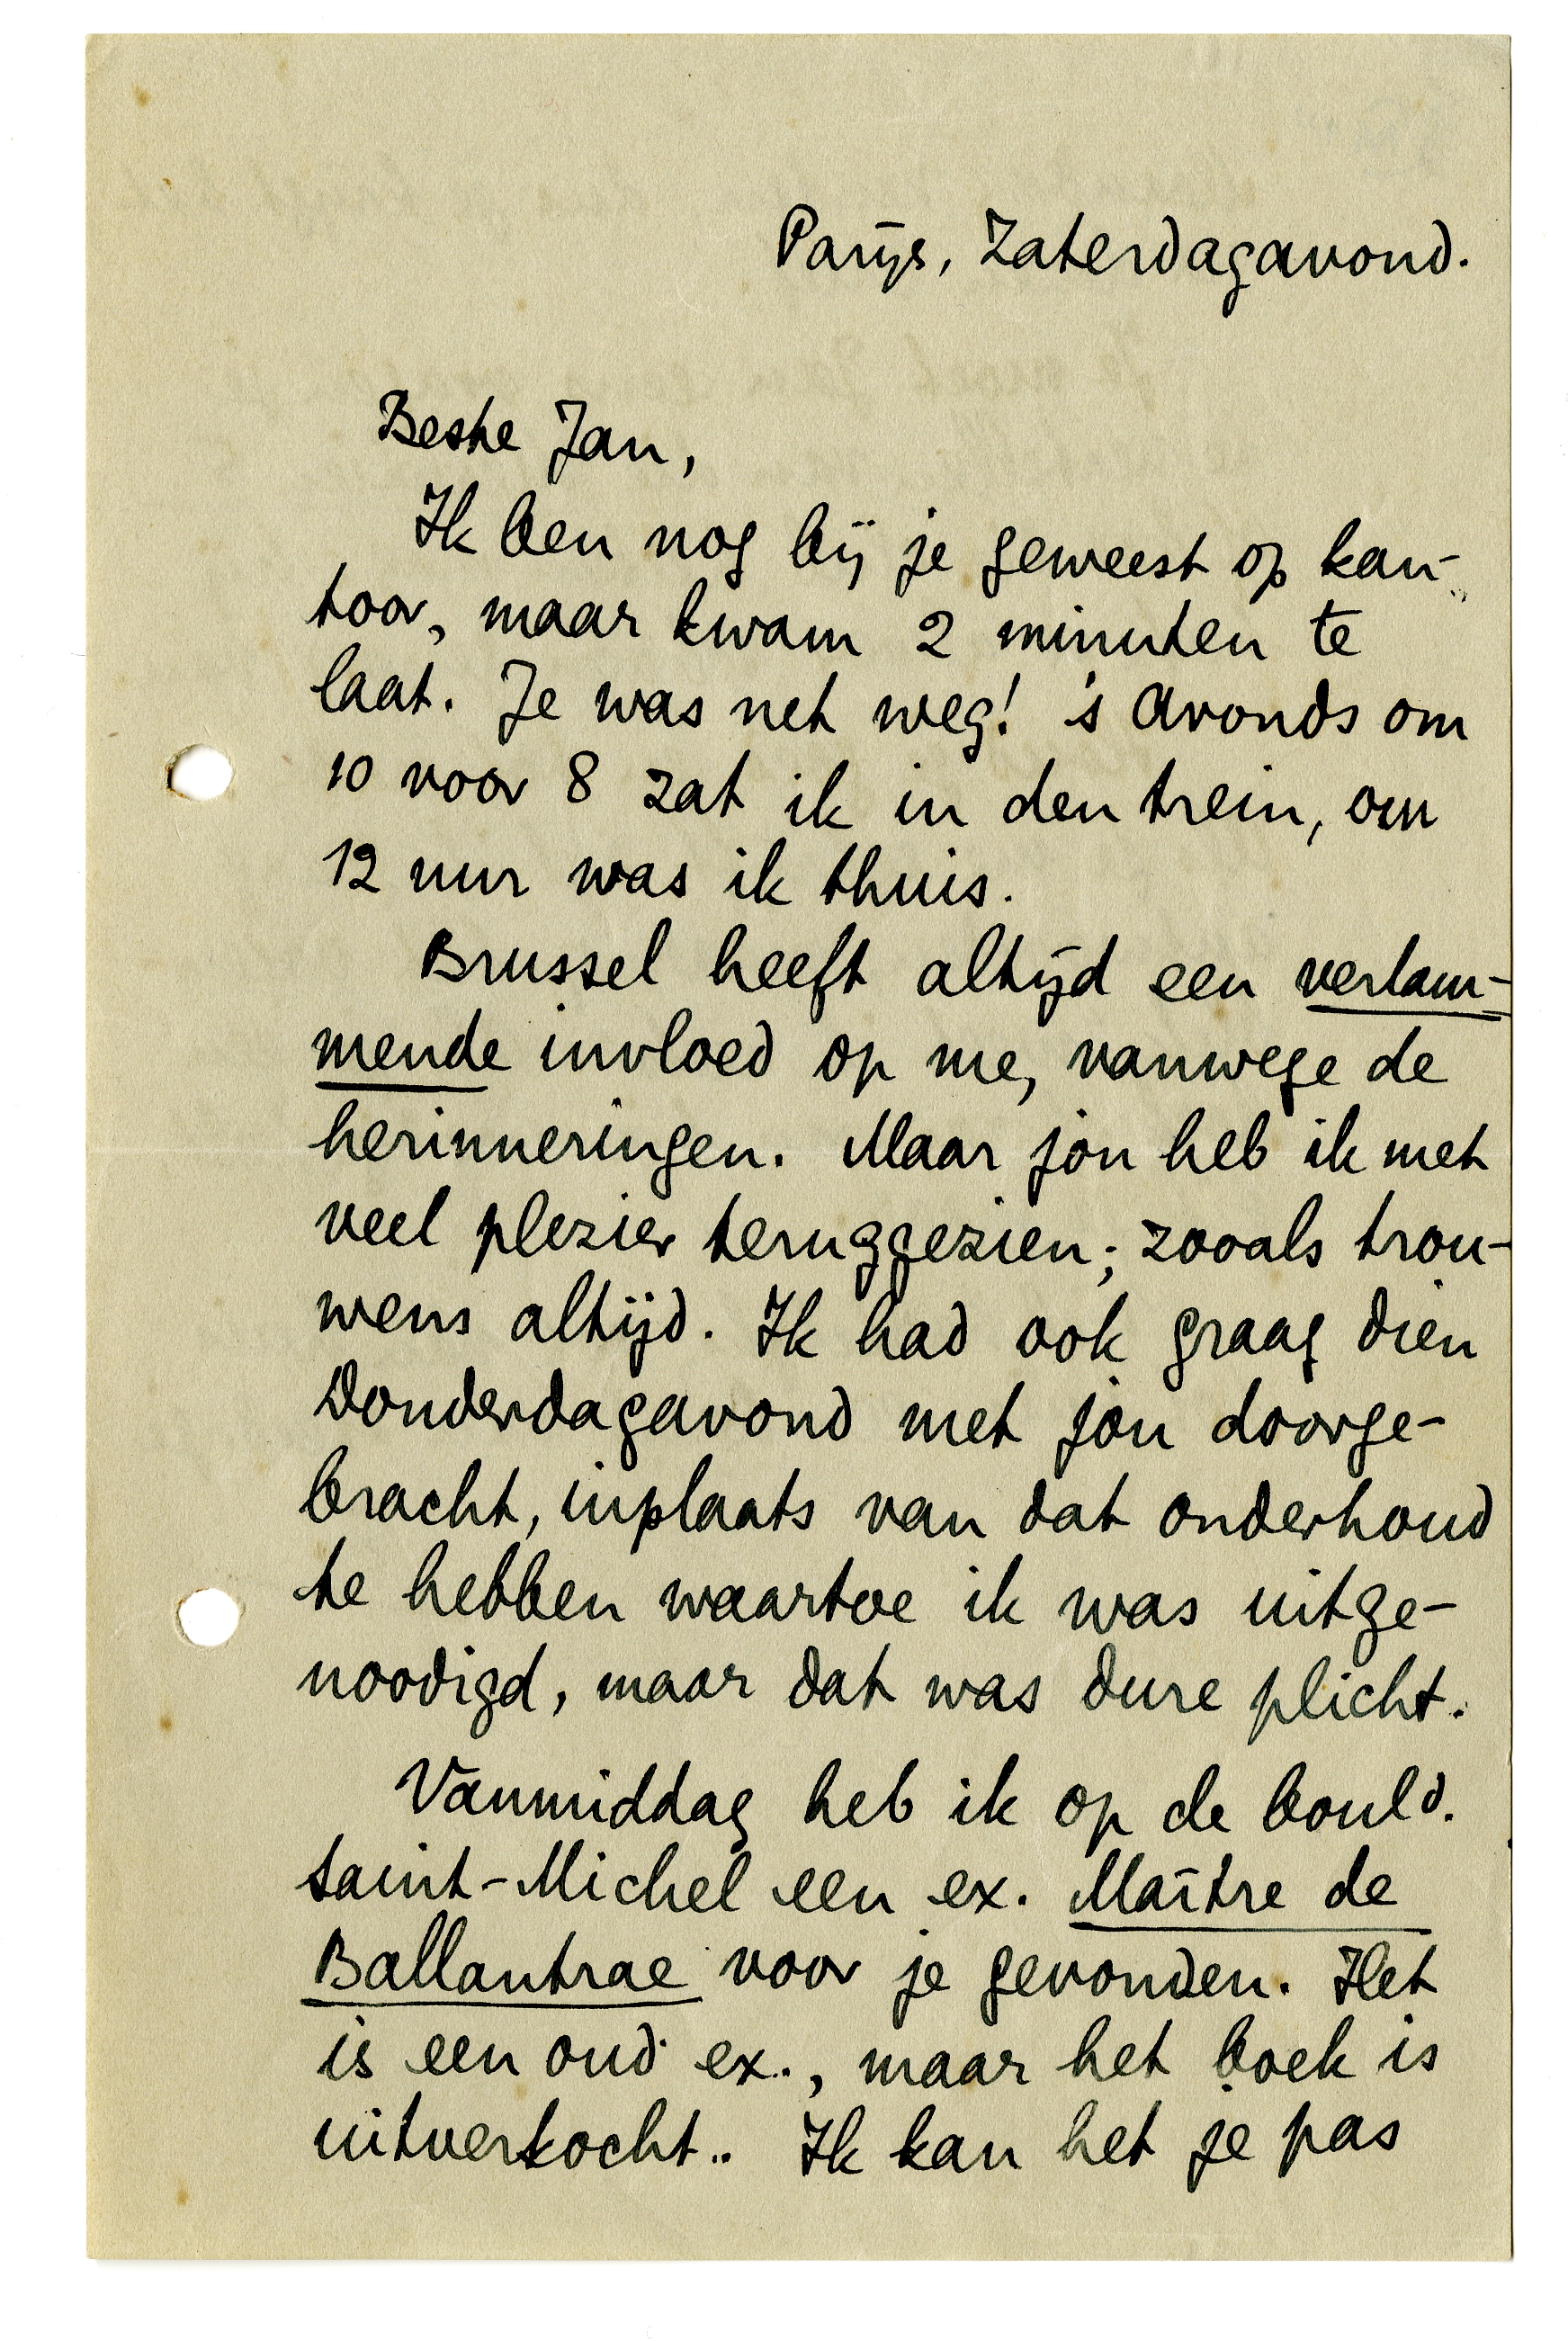 Parijs, Zaterdagavond.
Beste Jan,
Ik ben nog bij je geweest op kan-
toor, maar kwam 2 minuten te
laat. Je was net weg! 's Avonds om
10 voor 8 zat ik in den trein, om
12 uur was ik thuis.
Brussel heeft altijd een verlam-
mende invloed op me, vanwege de
herinneringen. Maar jòu heb ik met
veel plezier teruggezien; zooals trou-
wens altijd. Ik had ook graag dien
Donderdagavond met jòu doorge-
bracht, inplaats van dat onderhoud
te hebben waartoe ik was uitge-
noodigd, maar dat was dure plicht.
Vanmiddag heb ik op de bould.
Saint-Michel een ex. Maître de
Ballantrae voor je gevonden. Het
is een oud ex., maar het boek is
uitverkocht.. Ik kan het je pas